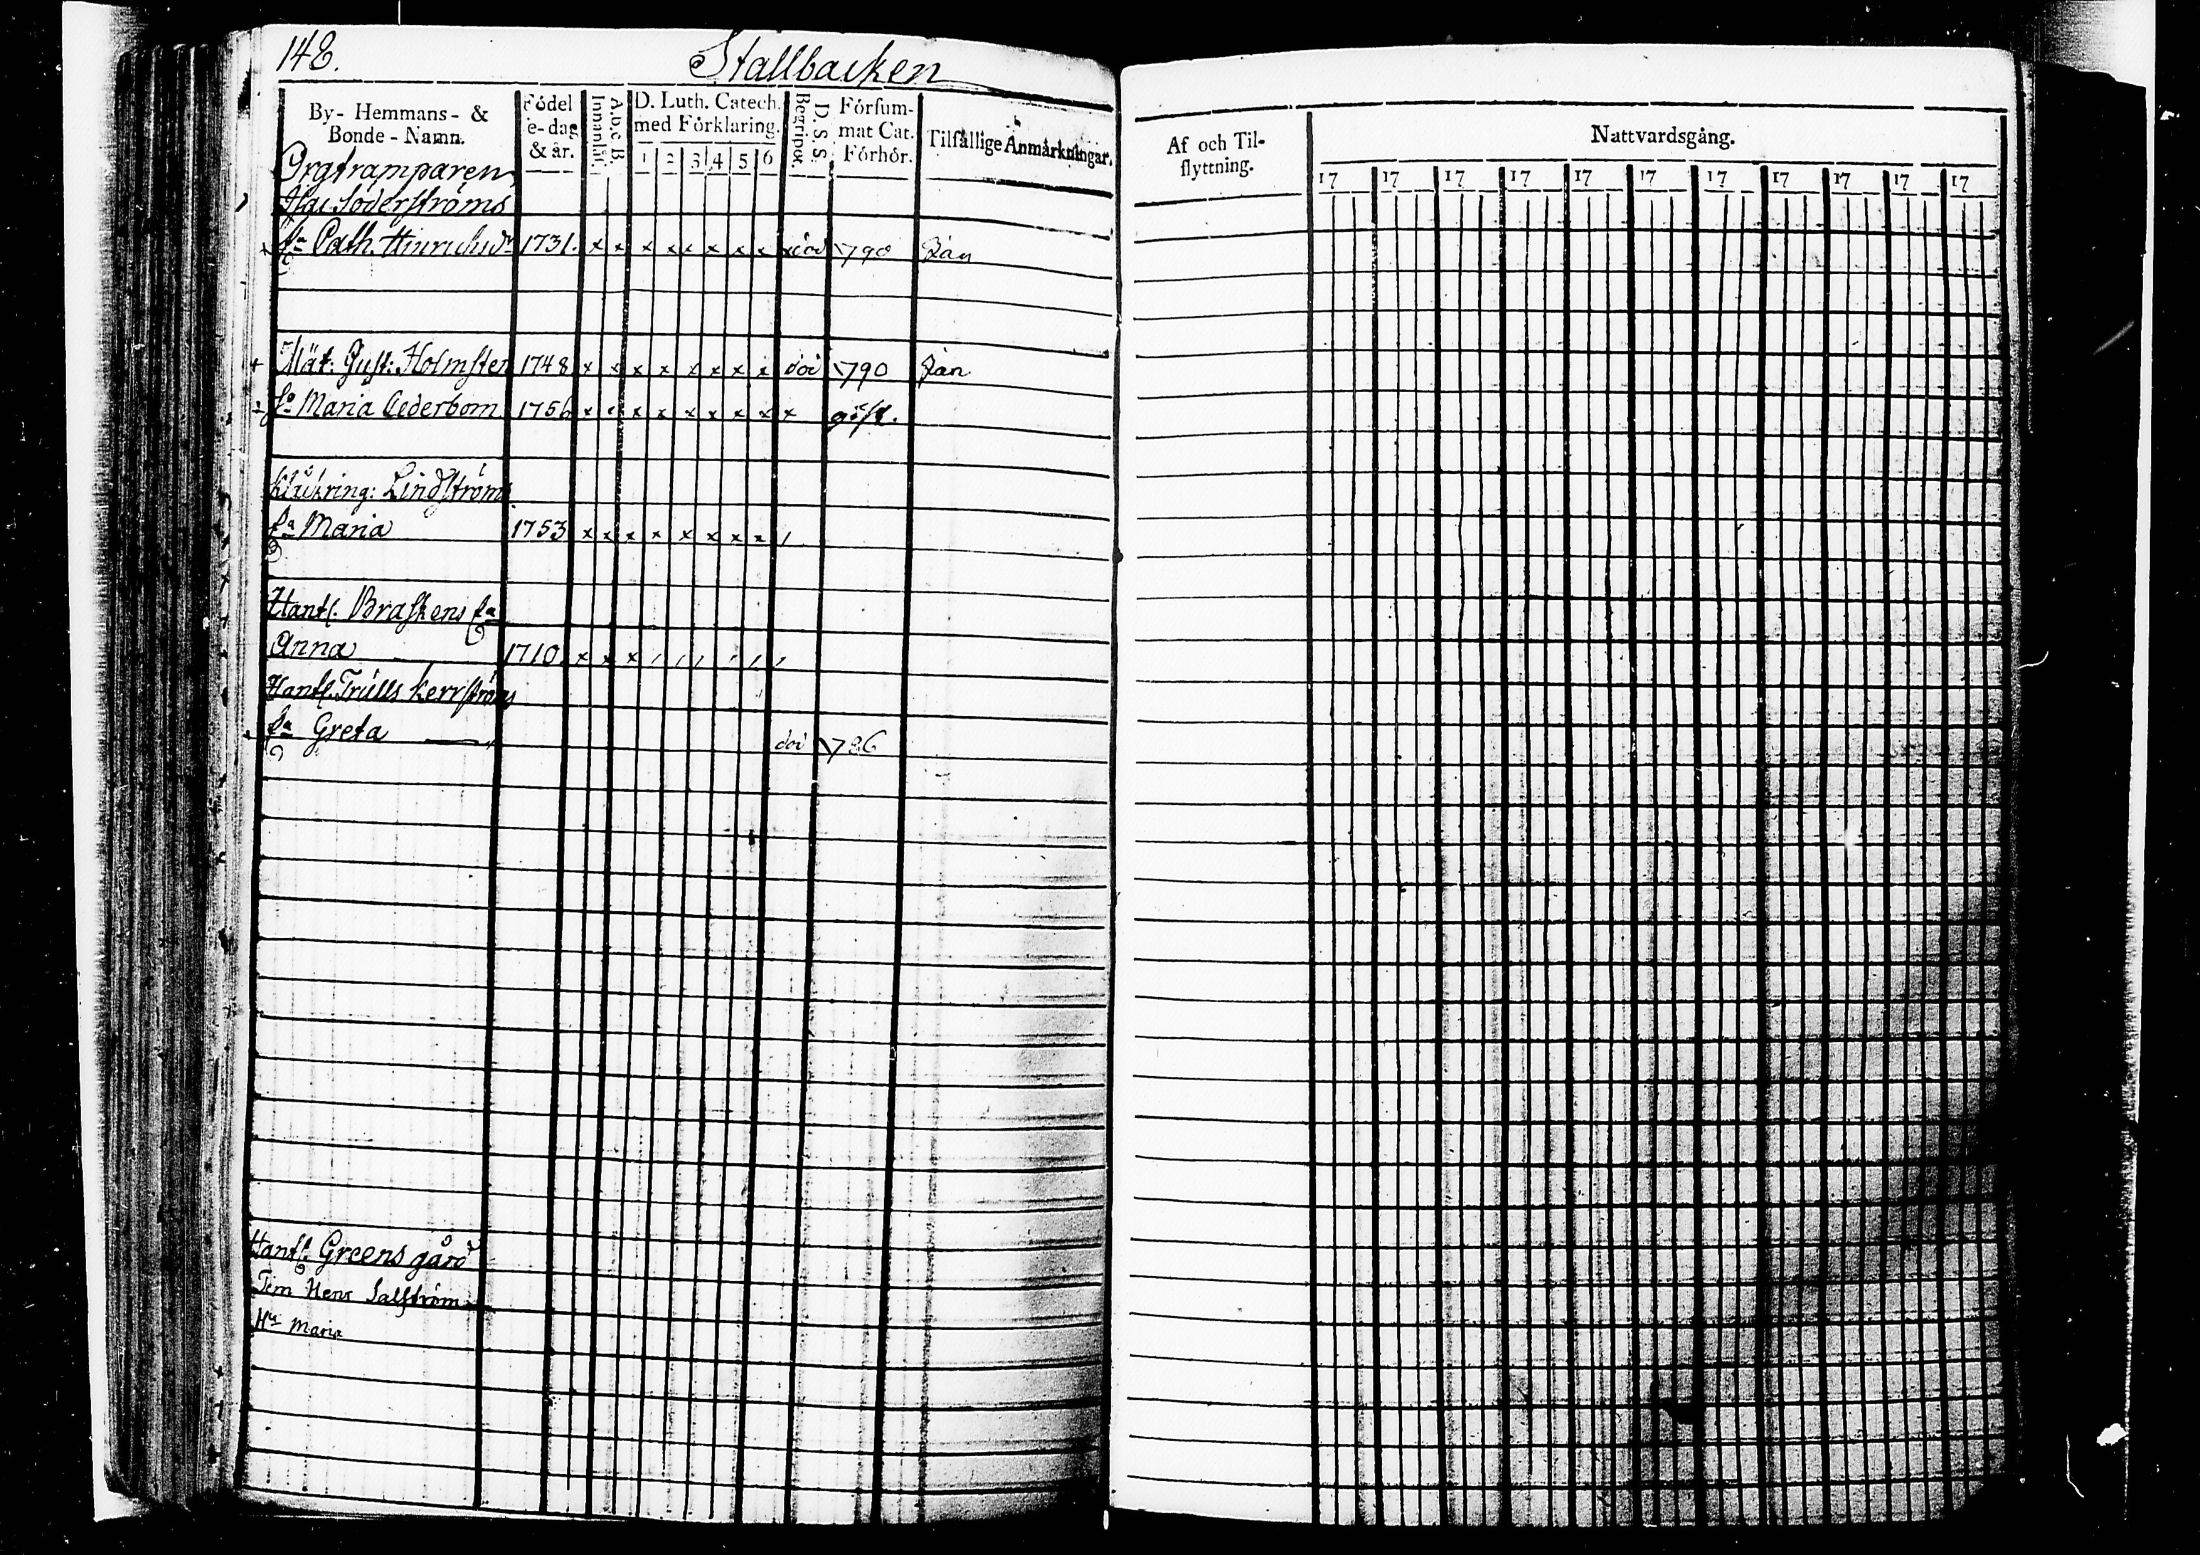 148.
Stallbacken
By- Hemmans- &
Bonde-Namn.
Födel
e-dag
& år.
Innanläs.
A.b.c.B.
D. Luth. Catech.
med Förklaring.
1 2 3 4 5 6
D. S. S.
Begripet.
Försum-
mat Cat.
Förhör.
Tilfällige Anmärkningar.
Orgtramparen
Söderströms
Ea Cath. Hinrichsdr 1731. x x x x x x x x död 1790 Jan
Mät: Gust: Holmsten 1748 x x x x x x x x död 1790 Jan
Maria Cederbom 1756 x x x x x x x x x gift.
Klåckring: Lindströms
Ea Maria 1753 x x x x x x x x /
Hantl. Braskens Ea
Anna 1710 x x x / / / / / /
Hantl. Trulls Kerrströms
Ea Greta död 1786
Hantl. Greens gård
Tem Henr Salström
Hu Maria
Af och Til-
flyttning.
Nattvardsgång.
17 17 17 17 17 17 17 17 17 17 17